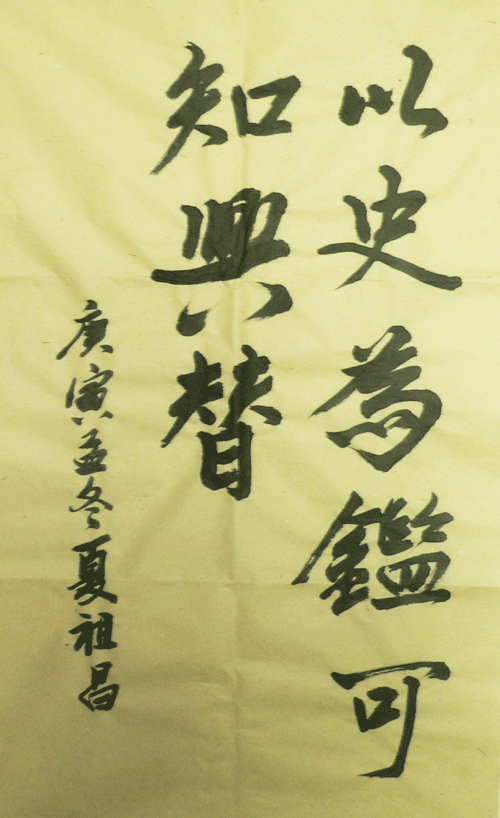 以史為鑑可
知興替
庚寅孟冬夏祖昌